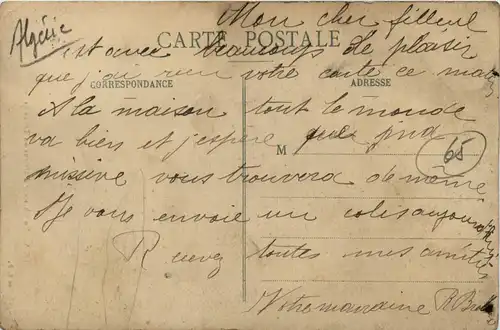 Algérie
Mon cher filleul
CARTE POSTALE
est avec beaucoup de plaisir
que j'ai reçu votre carte ce matin
CORRESPONDANCE
ADRESSE
A la maison tout le monde
va bien et j'espère que
M
65
missive vous trouvera de même
Je vous envoie un colis aujourd'hui
Recevez toutes mes amitiés
Votre marraine